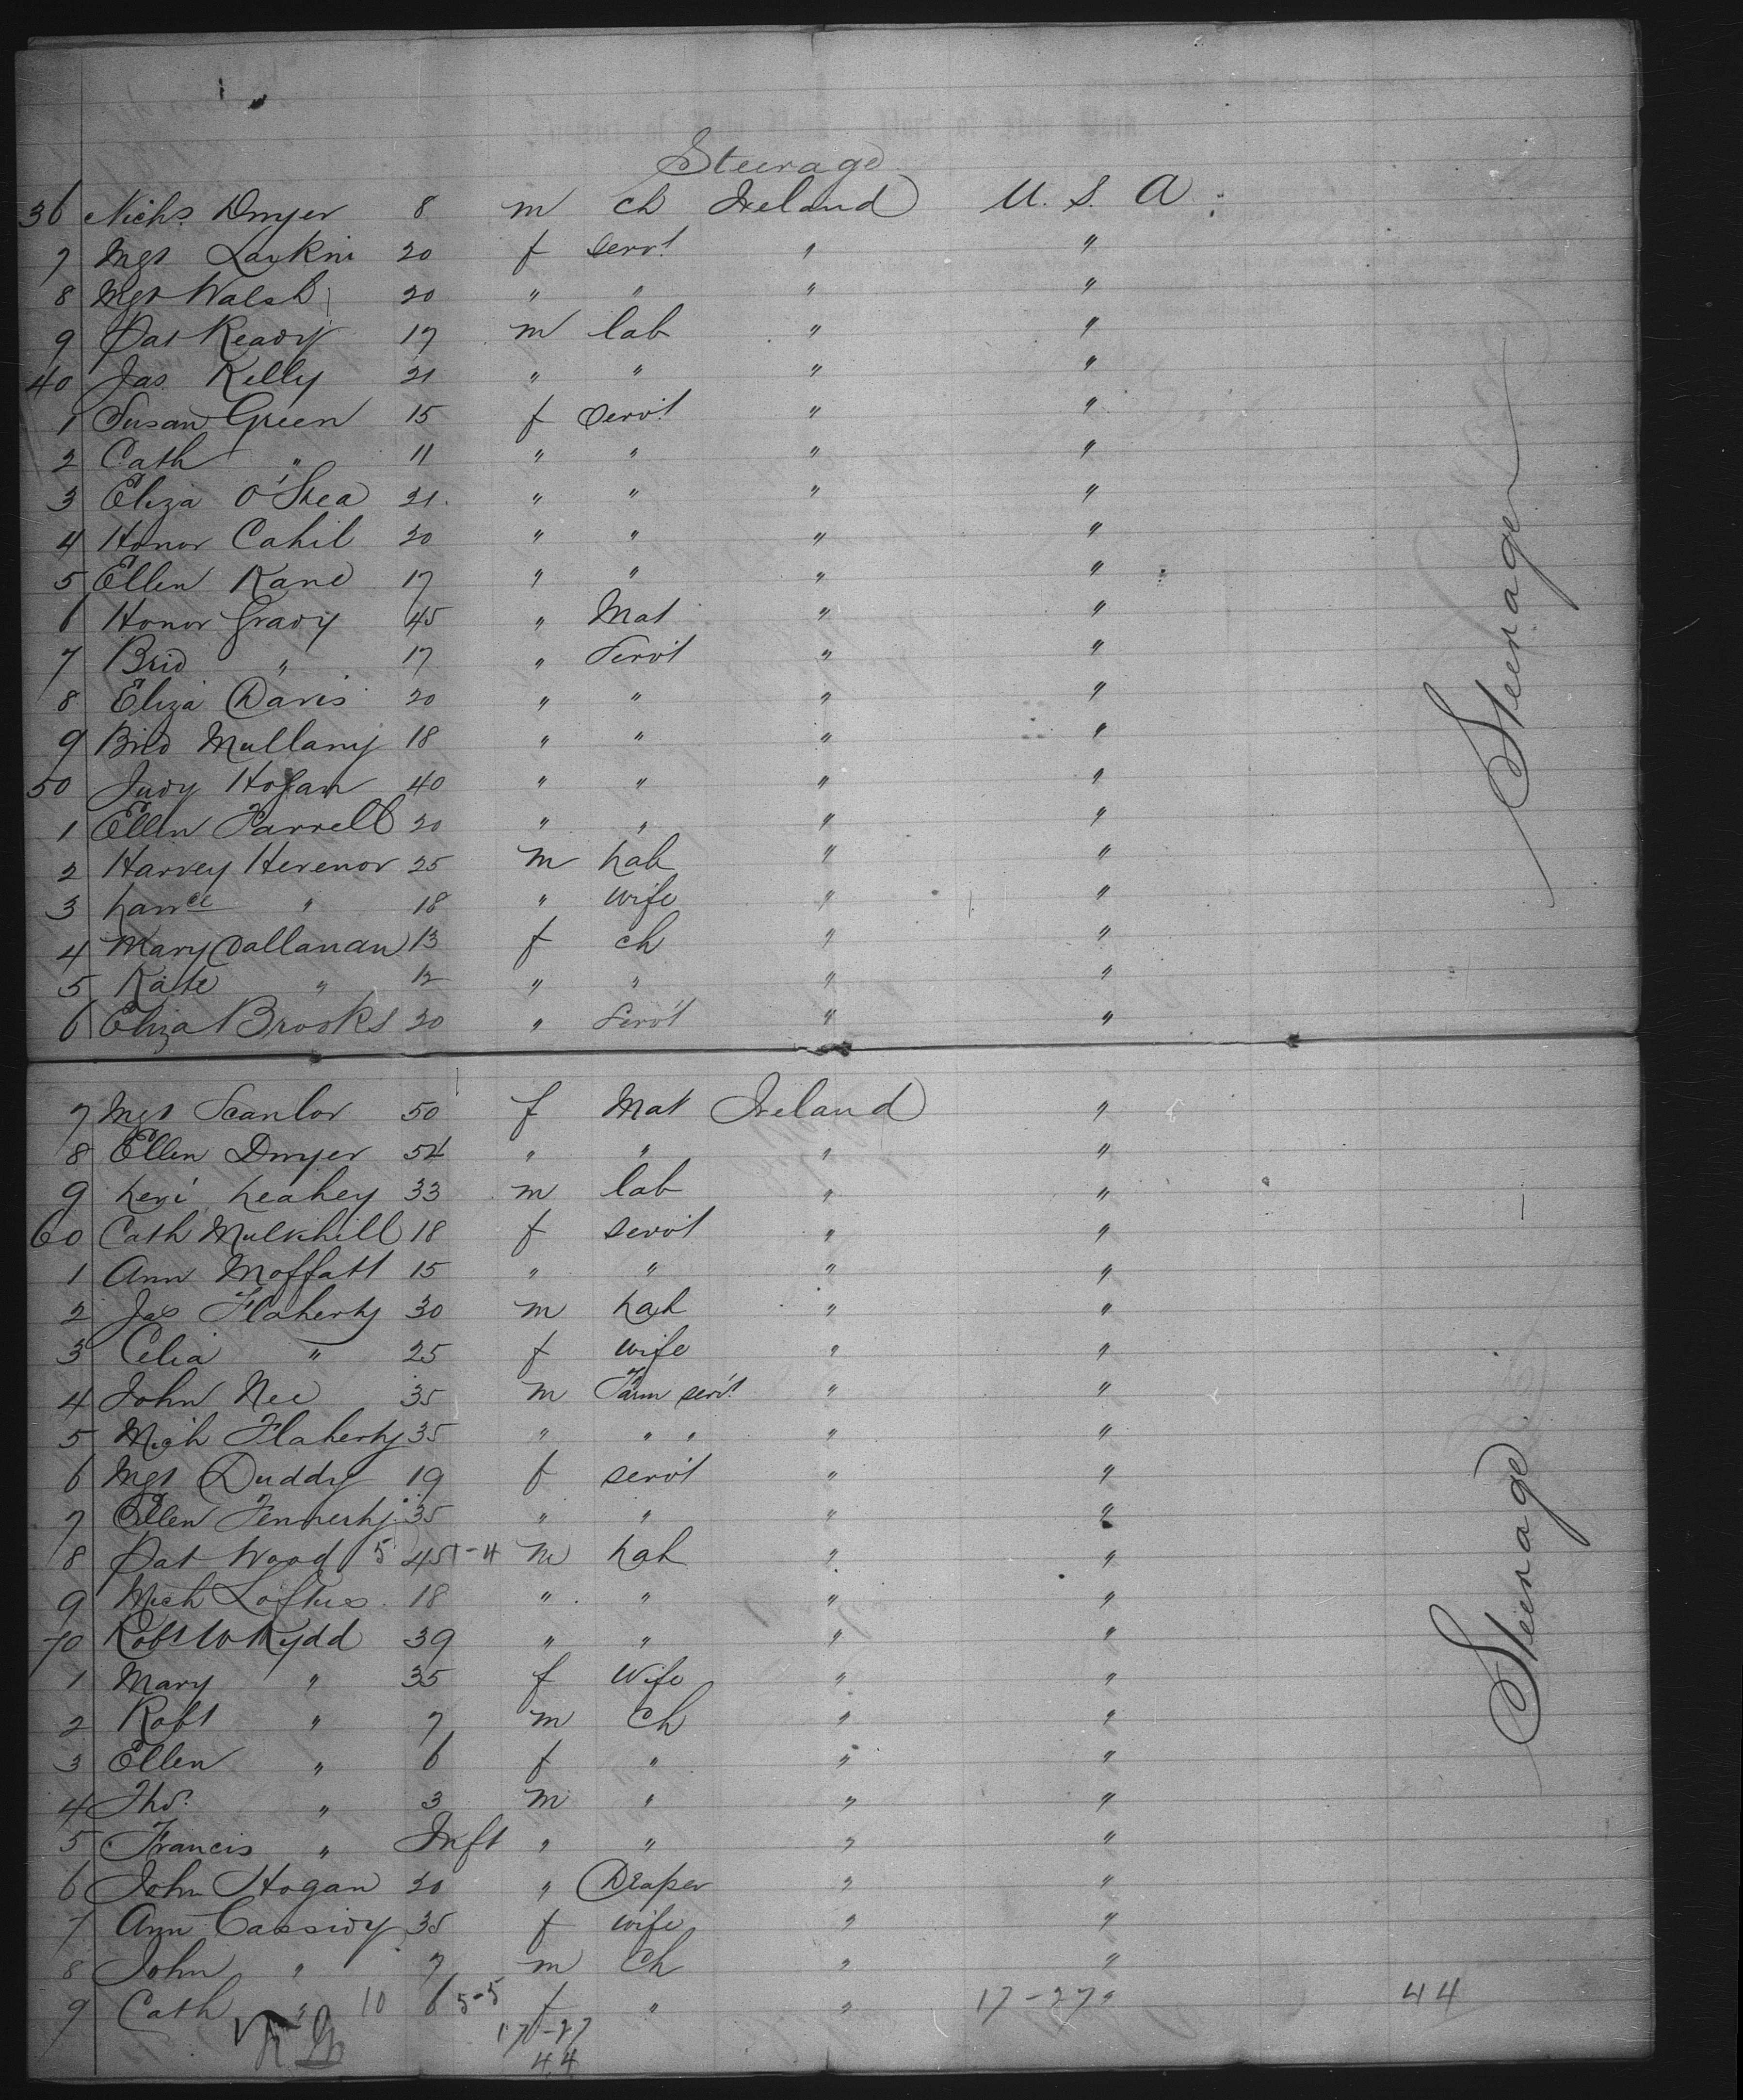 Steerage
36 Nichs. Dwyer 8 m ch Ireland U. S. A.
7 Mgt Larkin 20 f servt. " "
8 Mgt Walsh 20 " " " "
9 Pat Ready 17 m lab " "
40 Jas Kelly 21 " " " "
1 Susan Green 15 f servt " "
2 Cath " 11 " " " "
3 Eliza O'Shea 21 " " " "
4 Honor Cahil 20 " " " "
5 Ellen Kane 17 " " " "
6 Honor Grady 45 " Mat " "
7 Brid " 17 " Servt " "
8 Eliza Davis 20 " " " "
9 Brid Mullany 18 " " " "
50 Judy Hogan 40 " " " "
1 Ellen Farrell 20 " " " "
2 Harvey Herenor 25 m Lab " "
3 " 18 " wife " "
4 Mary Callanan 13 f ch " "
5 Kate " 12 " " " "
6 Eliza Brooks 20 " Servt " "
Steerage
7 Mgt Scanlor 50 f Mat Ireland "
8 Ellen Dwyer 54 " " " "
9 Levi Leahey 33 m lab " "
60 Cath Mulkhill 18 f servt " "
1 Ann Moffatt 15 " " " "
2 Jas Flaherty 30 m Lab " "
3 Celia " 25 f wife " "
4 John Nee 35 m Farm servt. " "
5 Mich Flaherty 35 " " " " "
6 Mgt Duddy 19 f servt " "
7 Ellen Fennerty 35 " " " "
8 Pat Wood 5 45 1-4 m Lab " "
9 Mich Loftus 18 " " " "
70 Robt W Kydd 39 " " " "
1 Mary " 35 f Wife " "
2 Robt " 7 m Ch " "
3 Ellen " 6 f " " "
4 Tho. " 3 m " " "
5 Francis " Inft " " " "
6 John Hogan 20 " Draper " "
7 Ann Cassidy 35 f wife " "
8 John " 7 m Ch " "
9 Cath " 10 6 5-5 f " " 17-27 " 44
17-27
44
Steerage